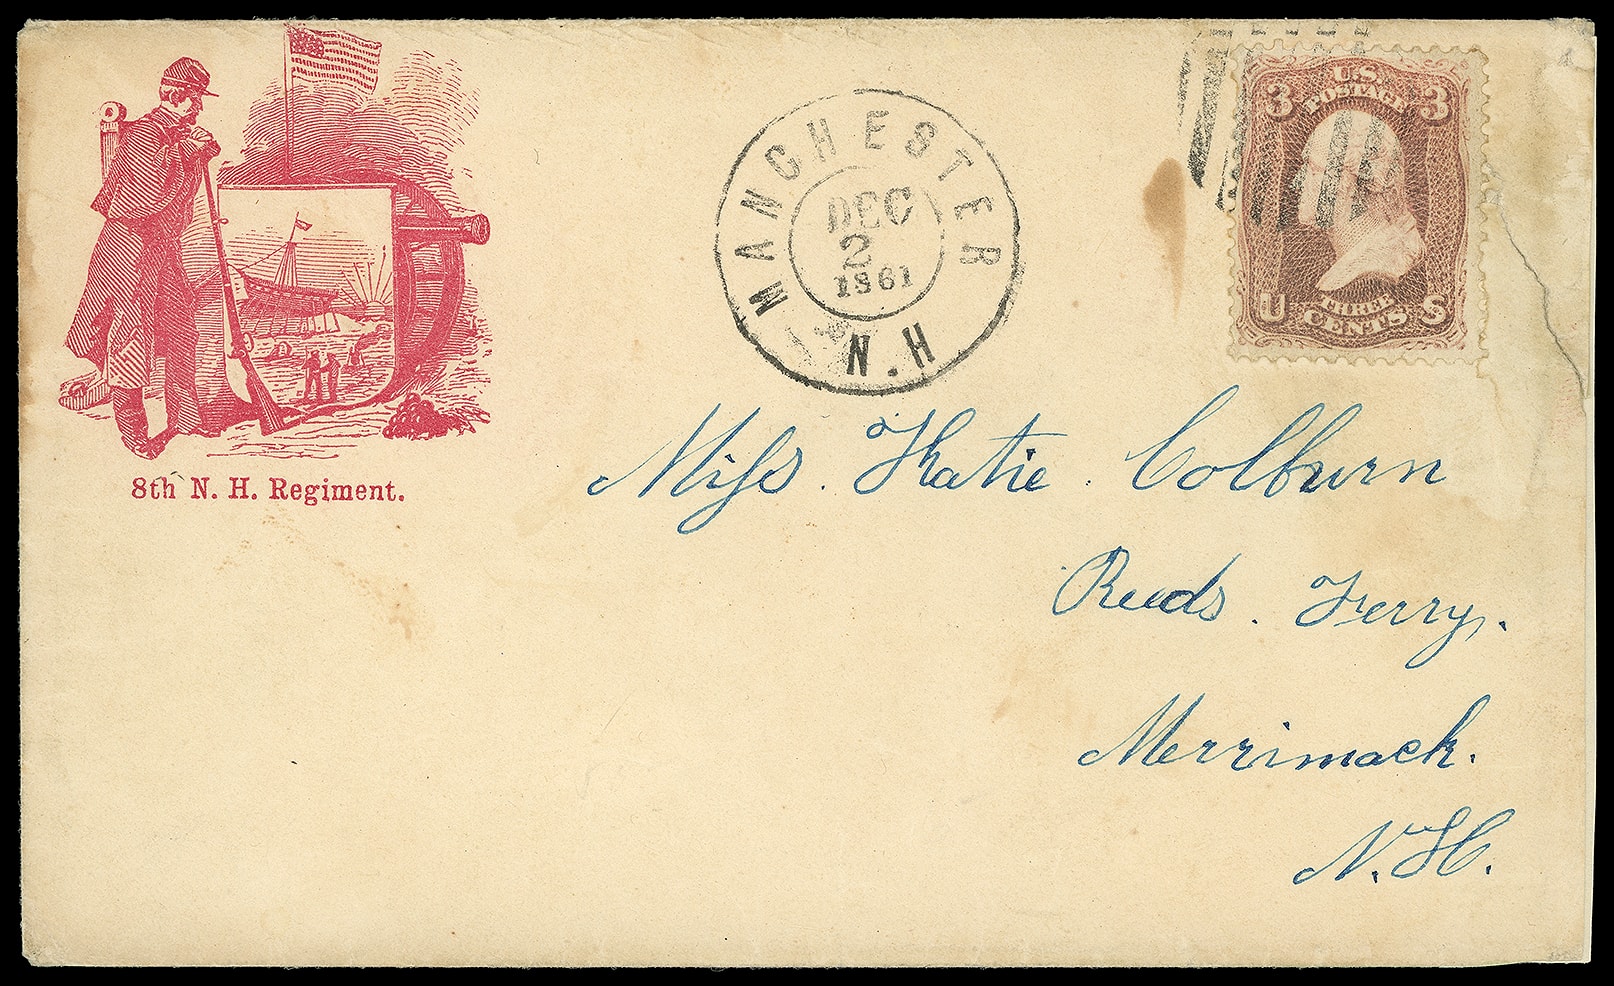 8th N. H. Regiment.
MANCHESTER
N.H.
DEC
2
1861
3 U.S. 3
POSTAGE
U THREE S
CENTS
Miss. Katie. Colburn
Reeds. Ferry.
Merrimack.
N. H.